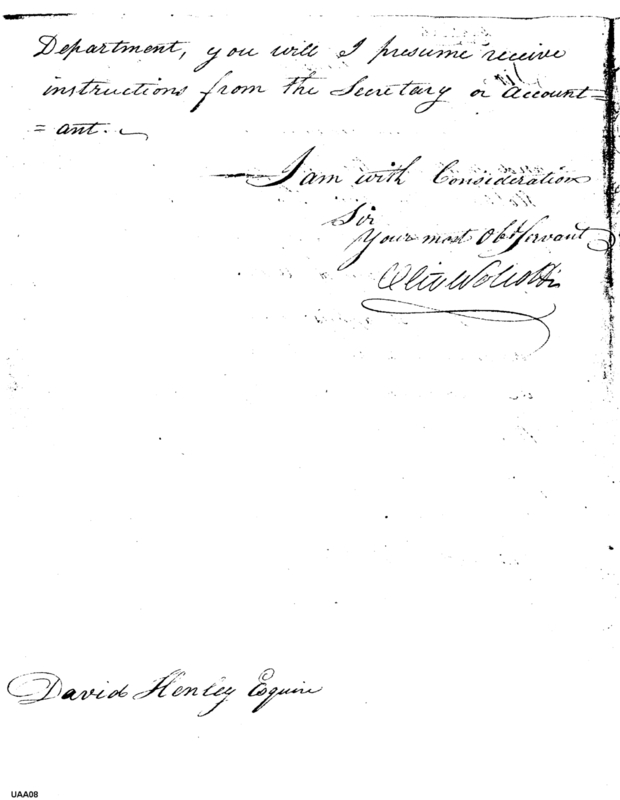 Department, you will I presume receive
instructions from the Secretary or Account=
=ant.
I am with Consideration
Sir
Your most Obt Servant
Oliv Wolcott
David Henley Esquire
UAA08